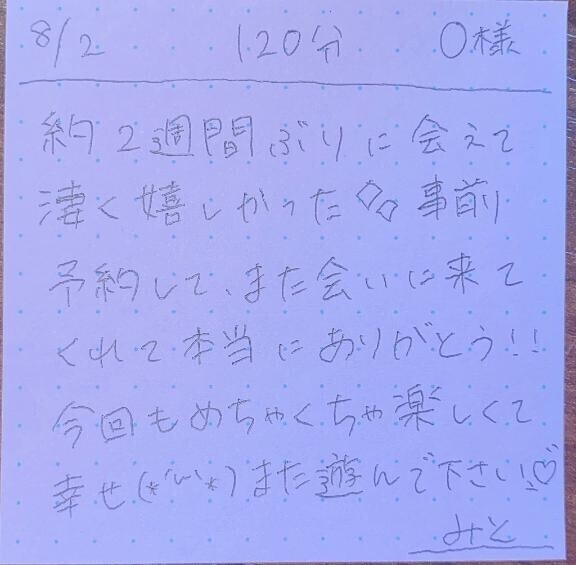 8/2 120分 〇様
約2週間ぶりに会えて
凄く嬉しかった◇◇事前
予約して、また会いに来て
くれて本当にありがとう!!
今回もめちゃくちゃ楽しくて
幸せ(*´ω`*)また遊んで下さい♡
みと